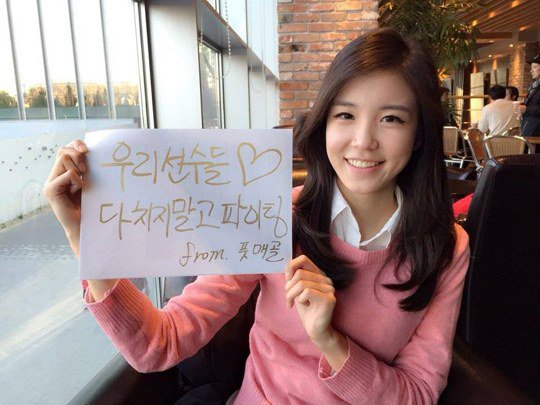 우리선수들♡
다치지말고 파이팅
from. 풋매골